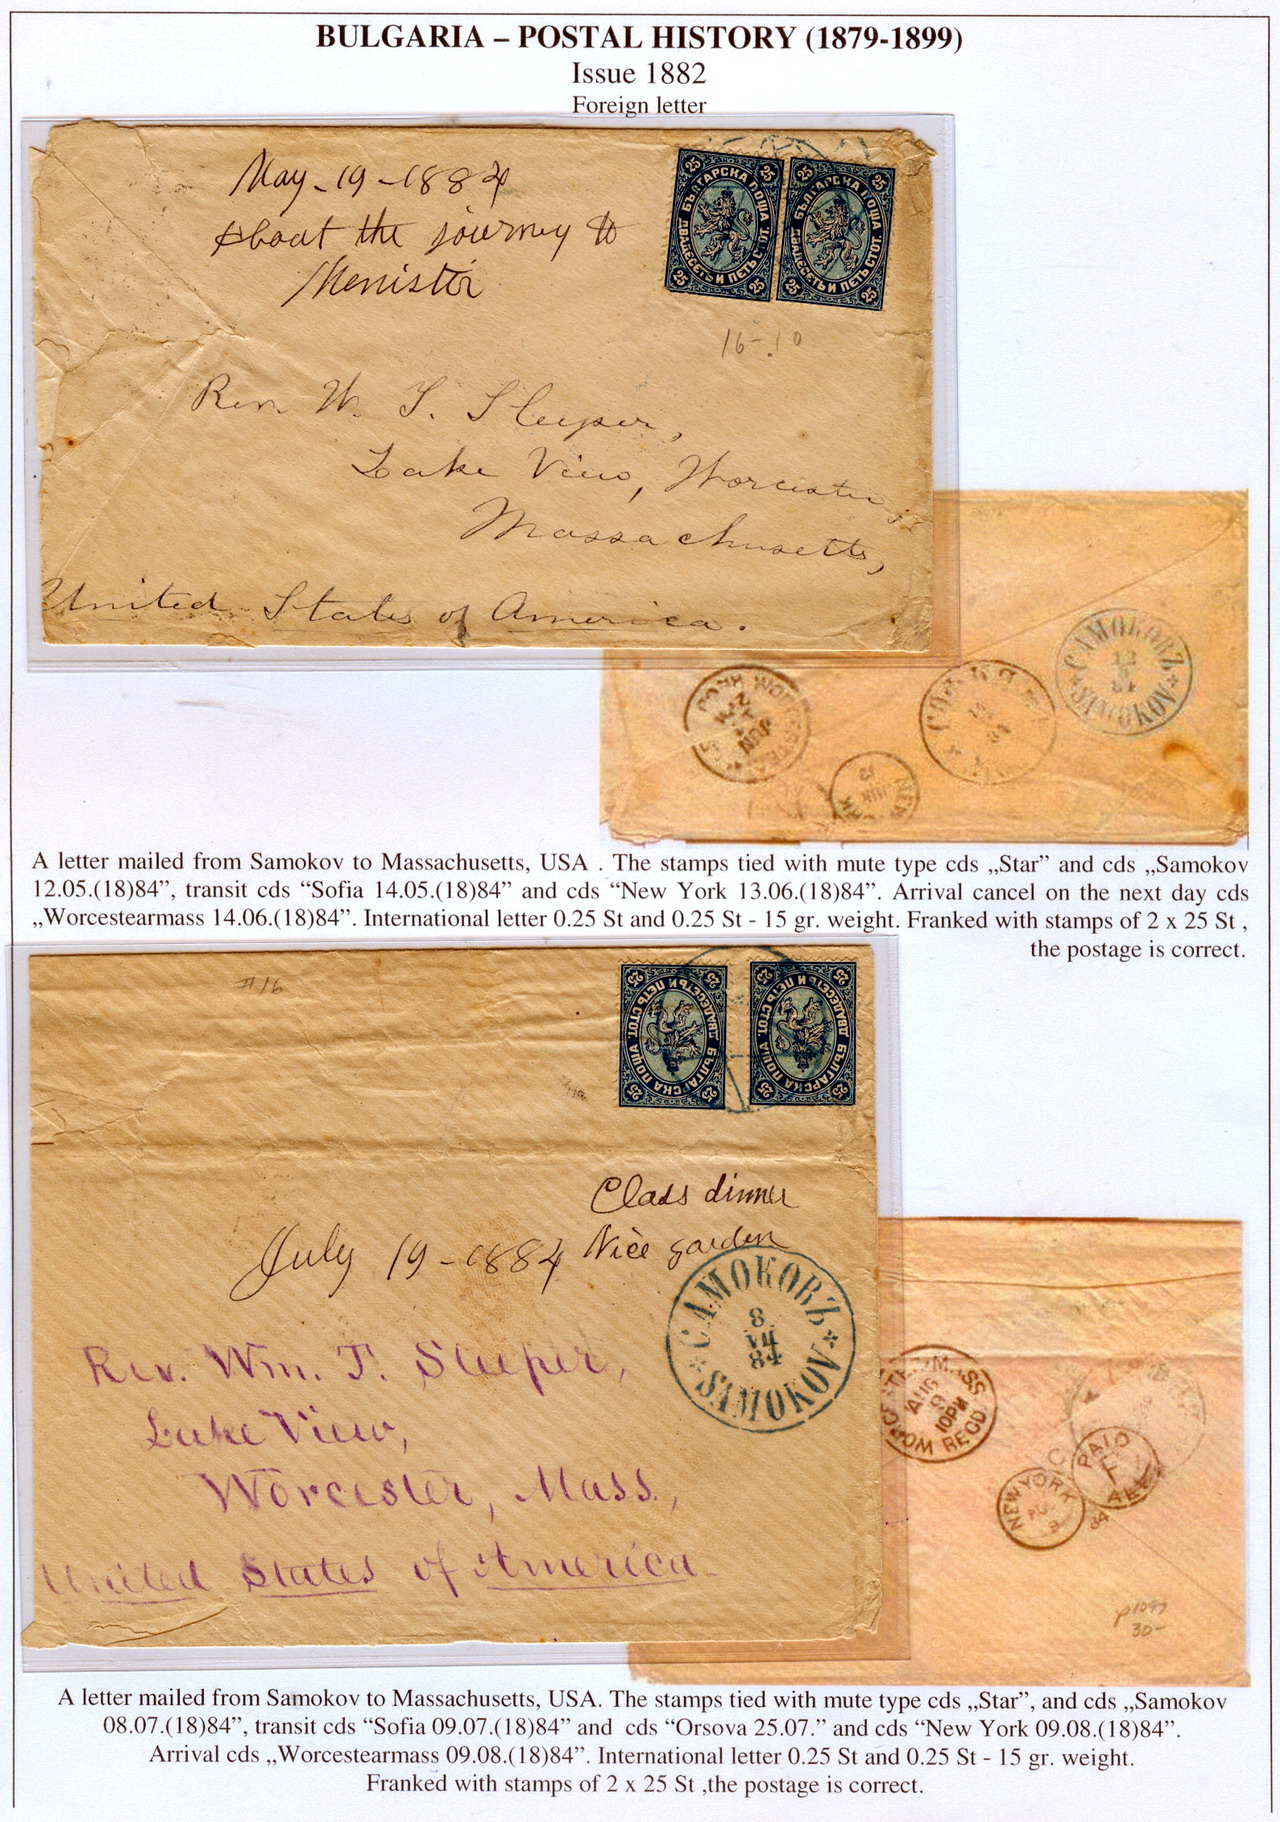 BULGARIA – POSTAL HISTORY (1879-1899)
Issue 1882
Foreign letter
May - 19 - 1884
about the journey to
Menistir
25 25
БЪЛГАРСКА ПОЩА
ДВАДЕСЕТЬ И ПЕТЬ СТОТ.
25 25
25 25
БЪЛГАРСКА ПОЩА
ДВАДЕСЕТЬ И ПЕТЬ СТОТ.
25 25
16-.10
Rev. W. T. Sleeper,
Lake View, Worcester,
Massachusetts,
United States of America.
САМОКОВЪ
12
84
SAMOKOV
JUN
NEW
JUN
13
84
A letter mailed from Samokov to Massachusetts, USA . The stamps tied with mute type cds „Star” and cds „Samokov
12.05.(18)84”, transit cds “Sofia 14.05.(18)84” and cds “New York 13.06.(18)84”. Arrival cancel on the next day cds
„Worcestearmass 14.06.(18)84”. International letter 0.25 St and 0.25 St - 15 gr. weight. Franked with stamps of 2 x 25 St ,
the postage is correct.
#16
25 25
БЪЛГАРСКА ПОЩА
ДВАДЕСЕТЬ И ПЕТЬ СТОТ.
25 25
25 25
БЪЛГАРСКА ПОЩА
ДВАДЕСЕТЬ И ПЕТЬ СТОТ.
25 25
Class dinner
July 19 - 1884 Nice garden
САМОКОВЪ
8
VII
84
SAMOKOV
Rev. Wm. T. Sleeper,
Lake View,
Worcester, Mass.,
United States of America
MASS
AUG
9
10PM
REC'D
NEW YORK
9
PAID
ALL
84
p1097
30-
A letter mailed from Samokov to Massachusetts, USA. The stamps tied with mute type cds „Star”, and cds „Samokov
08.07.(18)84”, transit cds “Sofia 09.07.(18)84” and cds “Orsova 25.07.” and cds “New York 09.08.(18)84”.
Arrival cds „Worcestearmass 09.08.(18)84”. International letter 0.25 St and 0.25 St - 15 gr. weight.
Franked with stamps of 2 x 25 St ,the postage is correct.